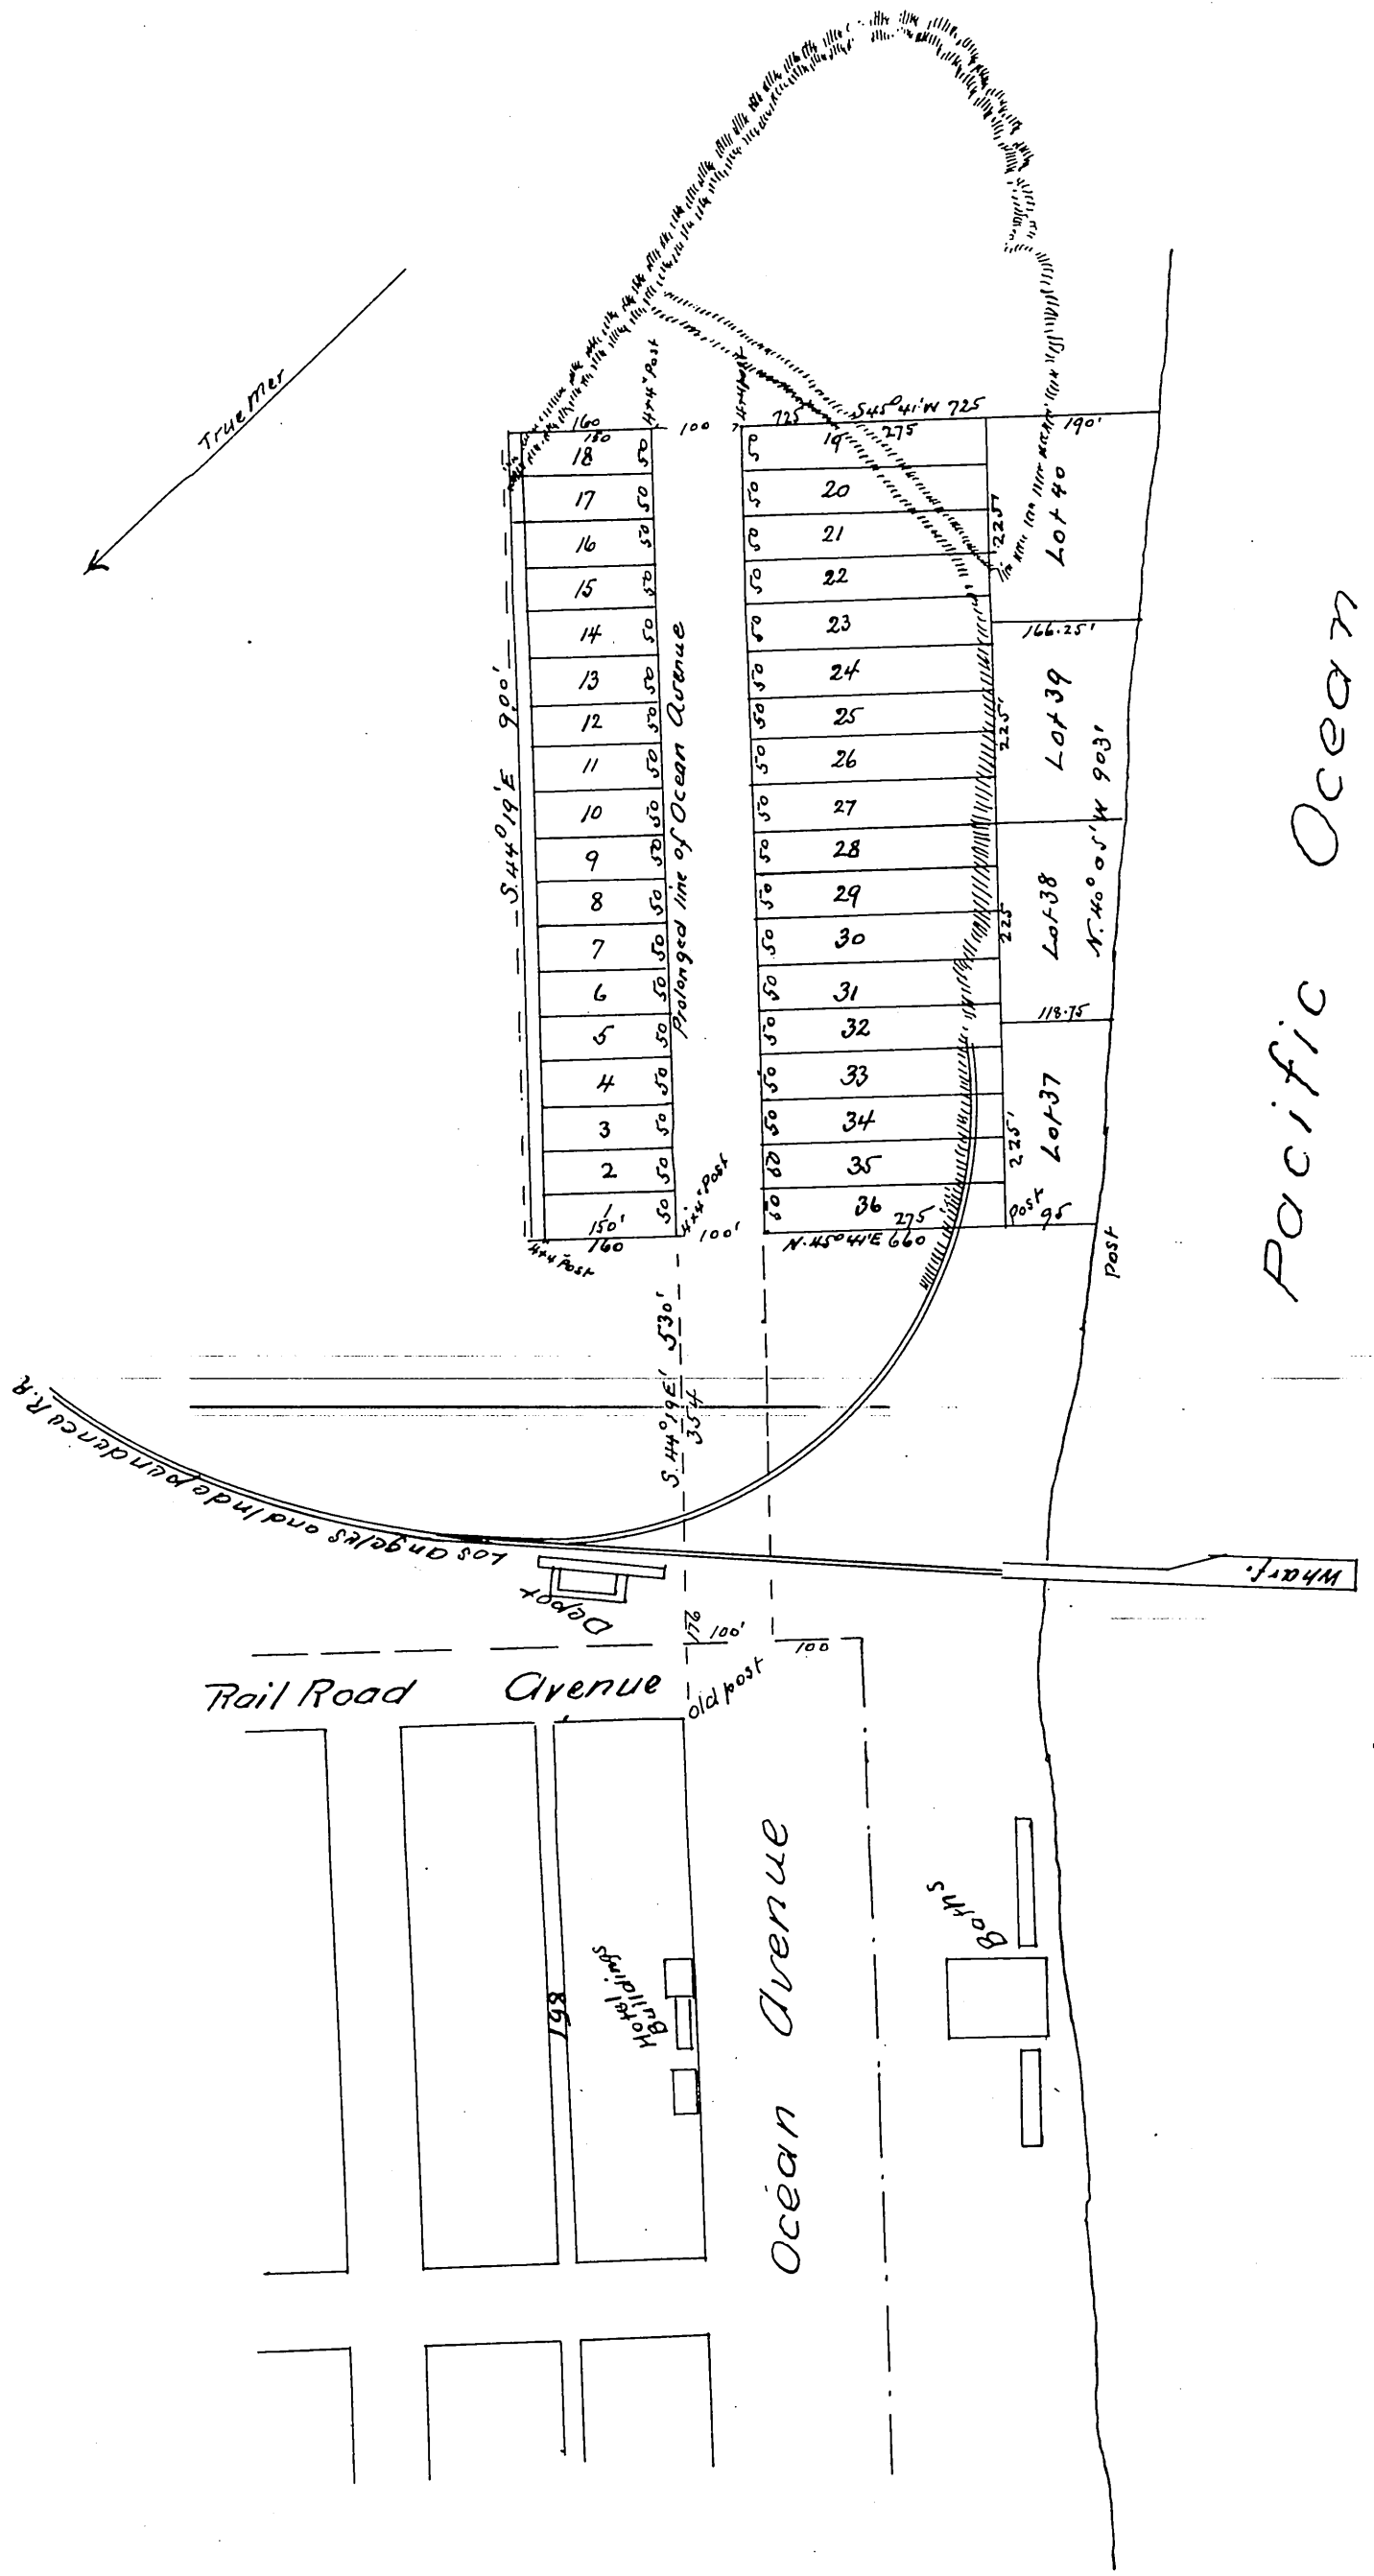 True Mer
S45°41'W 725
160
150
4x4" Post
100
725
275
190'
18 50
17 50
16 50
15 50
14 50
13 50
12 50
11 50
10 50
9 50
8 50
7 50
6 50
5 50
4 50
3 50
2 50
1 50
150'
160
4x4" Post
4x4" Post
100'
S.44°19'E 900'
Prolonged line of Ocean Avenue
50 19
50 20
50 21
50 22
50 23
50 24
50 25
50 26
50 27
50 28
50 29
50 30
50 31
50 32
50 33
50 34
50 35
50 36
275
N.45°41'E 660
225'
Lot 40
166.25'
225'
Lot 39
N.40°05'W 903'
225
Lot 38
118.75
225'
Lot 37
Post
95
Post
Pacific Ocean
S.44°19'E 530'
354
Los angeles and Independence R.R.
Depot
Wharf.
176
100'
100
old post
Rail Road Avenue
Ocean Avenue
Hotel
Buildings
198
Baths